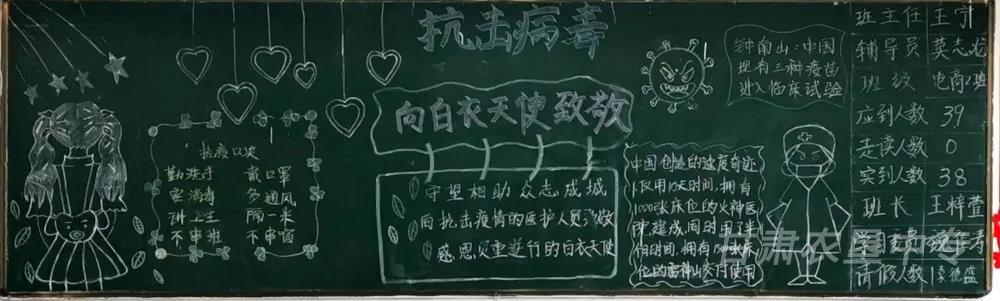 抗击病毒
向白衣天使致敬
钟南山：中国
现有三种疫苗
进入临床试验
抗疫口决
勤洗手 戴口罩
常消毒 多通风
讲卫生 隔一米
不串班 不串宿
守望相助众志成城
向抗击疫情的医护人员致敬
感恩负重逆行的白衣天使
中国创造的速度奇迹
仅用10天时间，拥有
1000张床位的火神医
院建成同时用了半
个月时间，拥有1500张床
位的雷神山交付使用
班主任 王宁
辅导员 莫志龙
班级 电商2班
应到人数 39
走读人数 0
实到人数 38
班长 王梓萱
请假人数 1